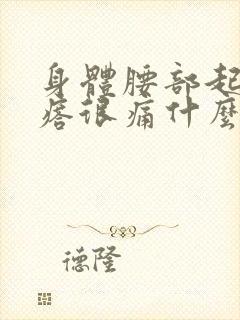 身體腰部起
痞很痛什麼
德隆